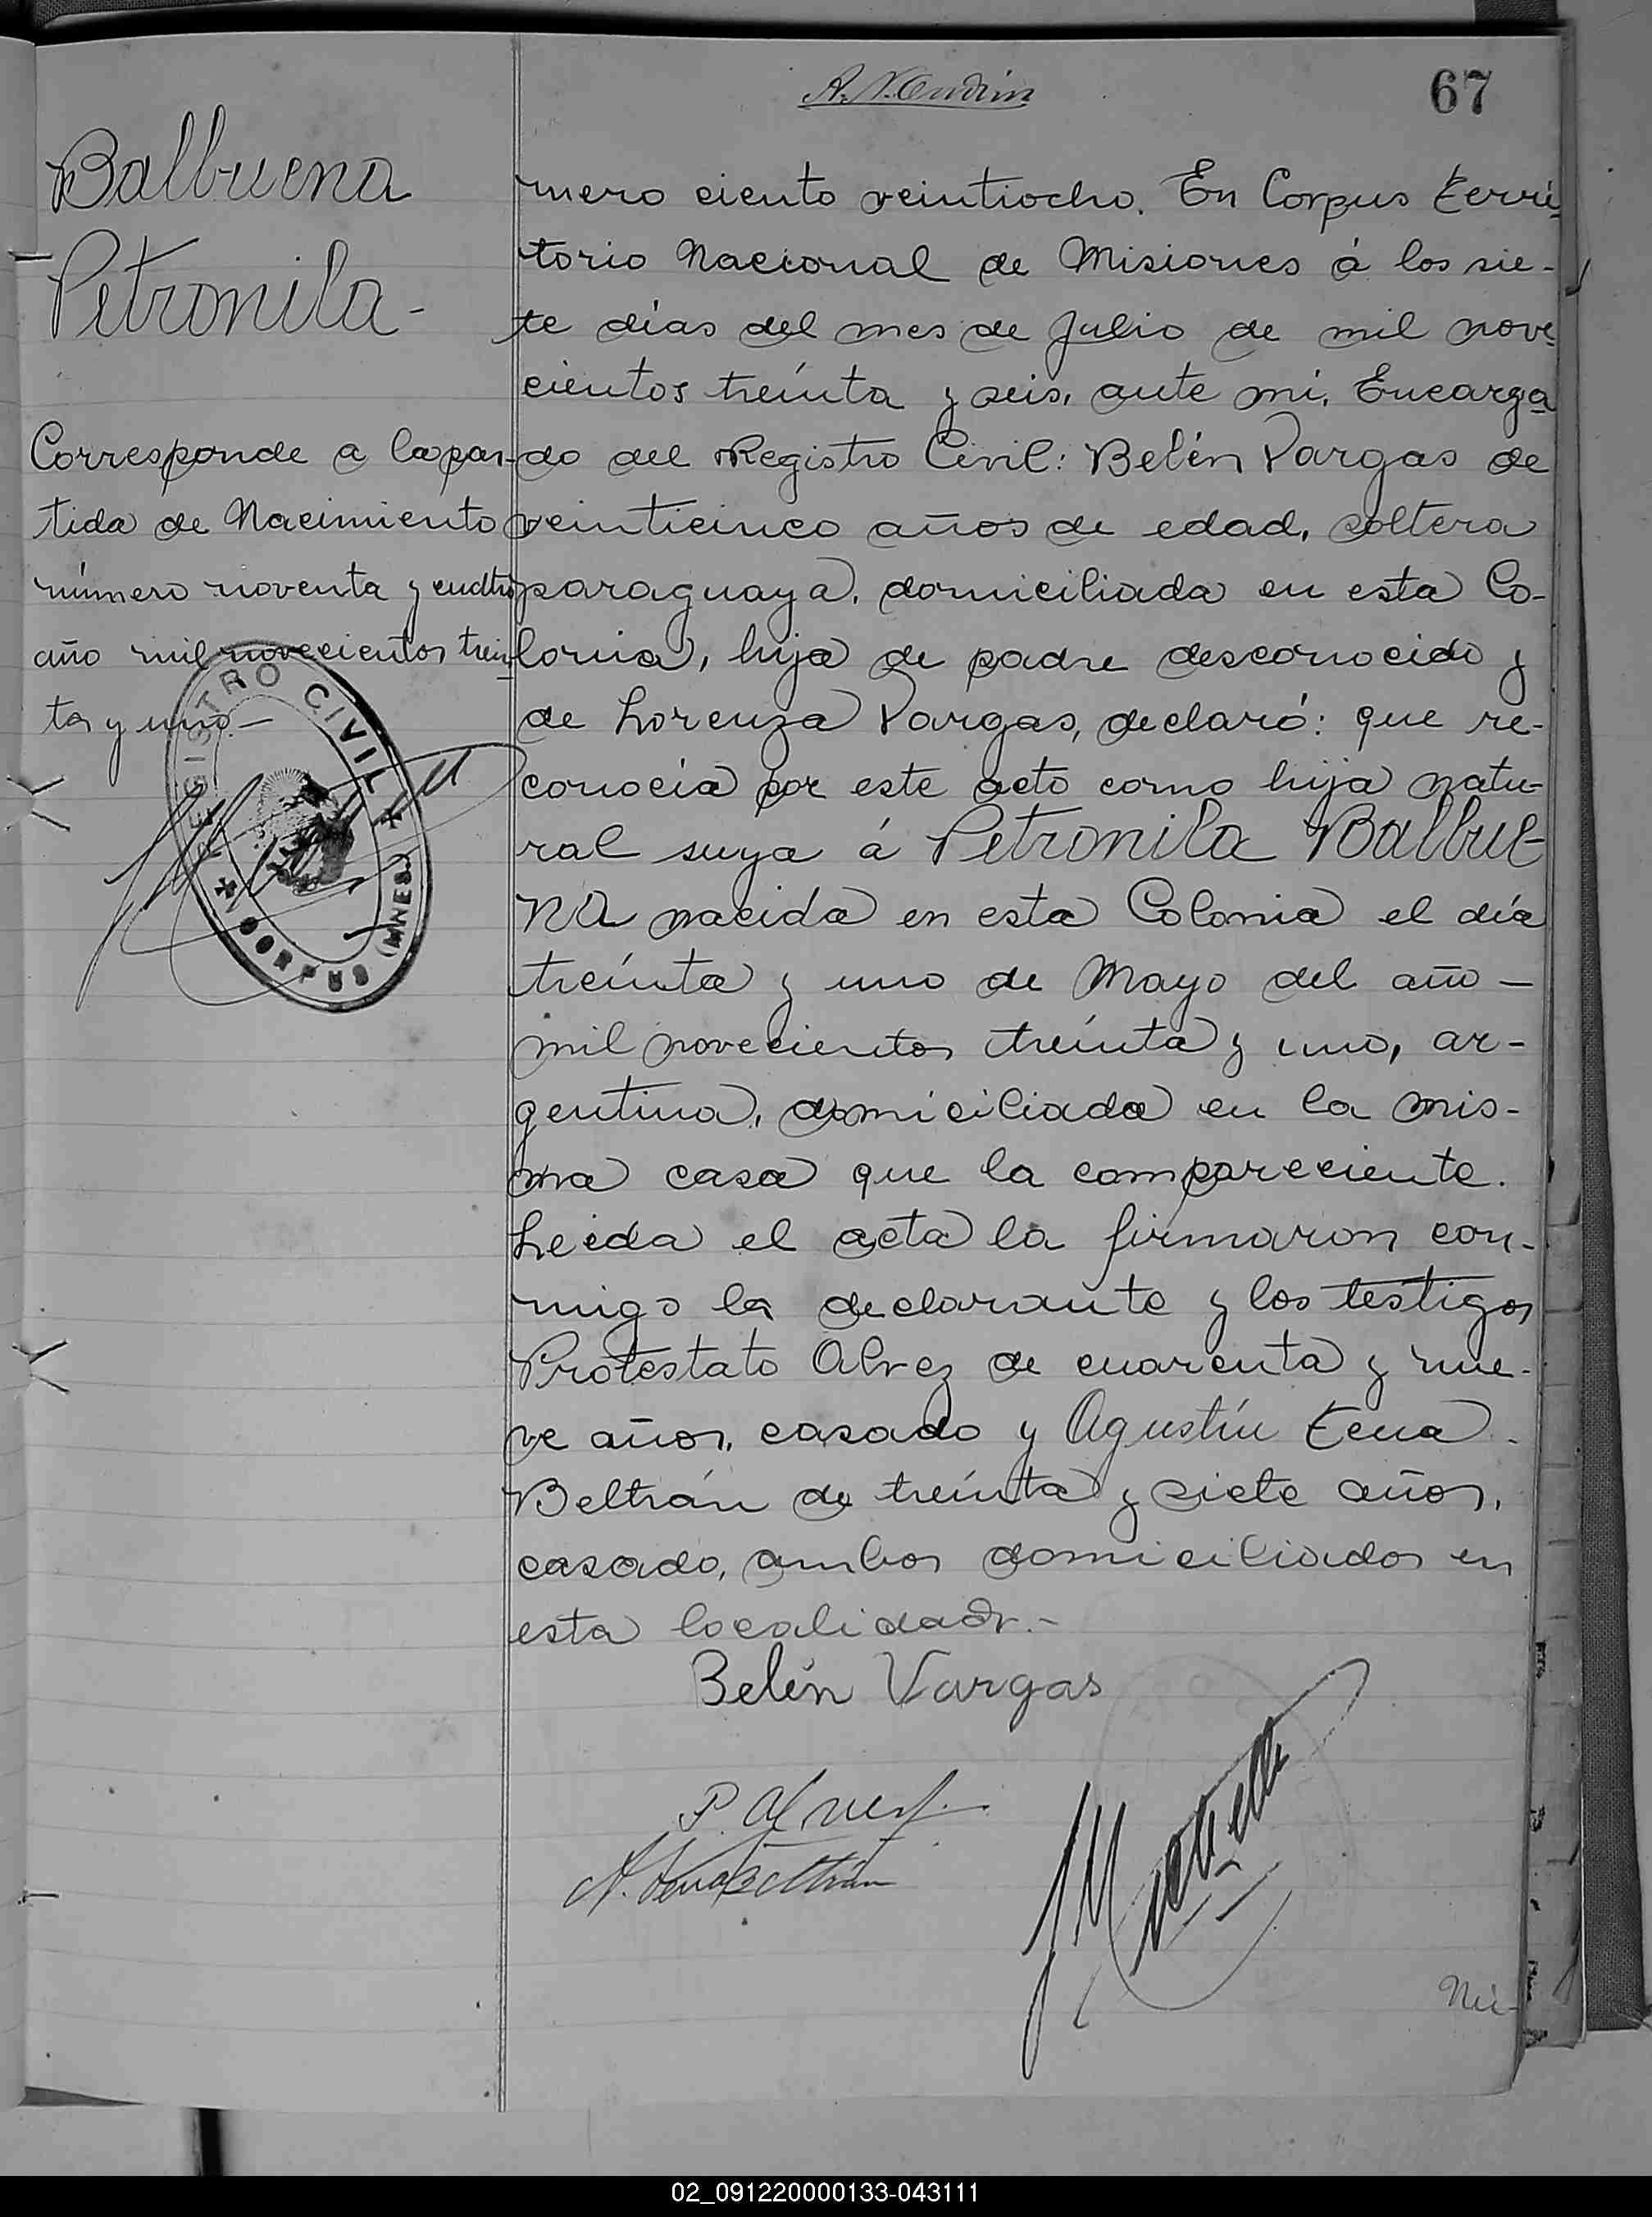 67
Balbuena
Petronila-
Corresponde a la par-
tida de Nacimiento
número noventa y cuatro
año mil novecientos trein-
ta y uno.-
REGISTRO CIVIL
CORPUS (MNES)
mero ciento veintiocho. En Corpus Terri-
torio Nacional de Misiones á los sie-
te días del mes de Julio de mil nove-
cientos treínta y seis, ante mí, Encarga-
do del Registro Civil: Belén Vargas de
veinticinco años de edad, soltera
paraguaya, domiciliada en esta Co-
lonia, hija de padre desconocido y
de Lorenza Vargas, declaró: que re-
conocía por este acto como hija natu-
ral suya á Petronila Balbue-
na nacida en esta Colonia el día
treínta y uno de Mayo del año -
mil novecientos treínta y uno, ar-
gentina, domiciliada en la mis-
ma casa que la compareciente.
Leida el acta la firmaron con-
migo la declarante y los testigos
Protestato Alvez de cuarenta y nue-
ve años, casado y Agustín Tena
Beltrán de treínta y siete años,
casado, ambos domiciliados en
esta localidad.-
Belén Vargas
P. Alvez
A. Tena Beltrán
Nú-
02_091220000133-043111